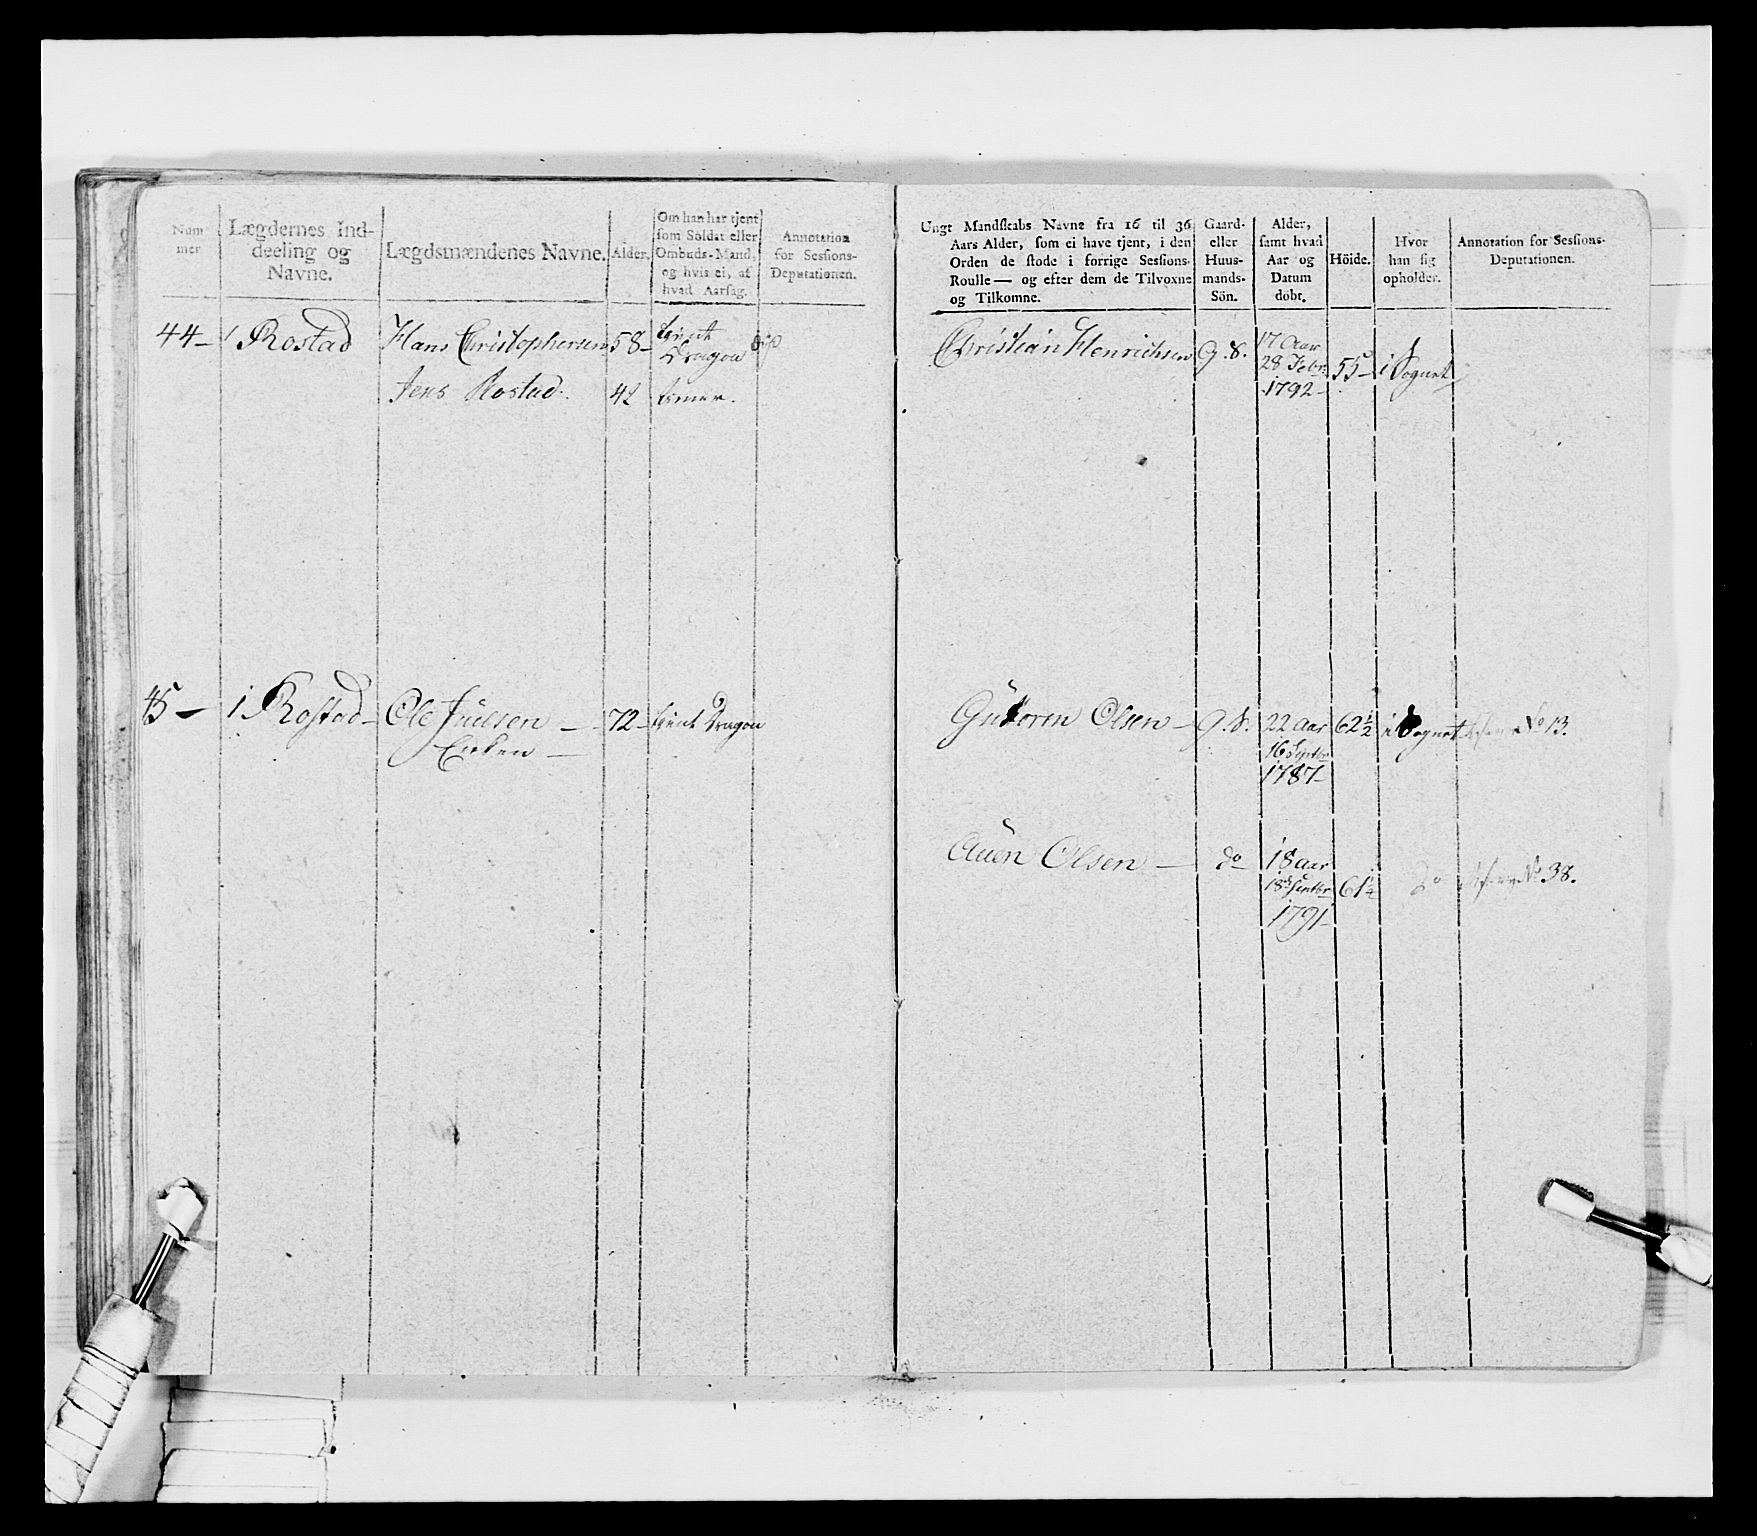 Num
mer.
Lægdernes Ind-
deeling og
Navne.
Lægdsmændenes Navne.
Alder.
Om han har tjent
som Soldat eller
Ombuds-Mand,
og hvis ei, af
hvad Aarsag.
Annotation
for Sessions-
Deputationen.
Ungt Mandskabs Navne fra 16 til 36
Aars Alder, som ei have tjent, i den
Orden de stode i forrige Sessions-
Roulle — og efter dem de Tilvoxne
og Tilkomne.
Gaard-
eller
Huus-
mands-
Sön.
Alder,
samt hvad
Aar og
Datum
döbt.
Höide.
Hvor
han sig
opholder.
Annotation for Sessions-
Deputationen.
44 – 1 Rostad Hans Christophersen 58 – tient
Dragon
Jens Rostad. 42
Christian Henrichsen g. S. 17 Aar
28 Febr.
1792 – 55 – i Sognet
45 – 1 Rostad – Ole Juelsen – 72 – tient Dragon
Enken –
Guttoren Olsen – g. S. 22 Aar 62½ i Sognet No 13.
16 Septbr
1787 –
Auen Olsen – do 18 Aar
18 Septbr 61¼ do No 38.
1791 –